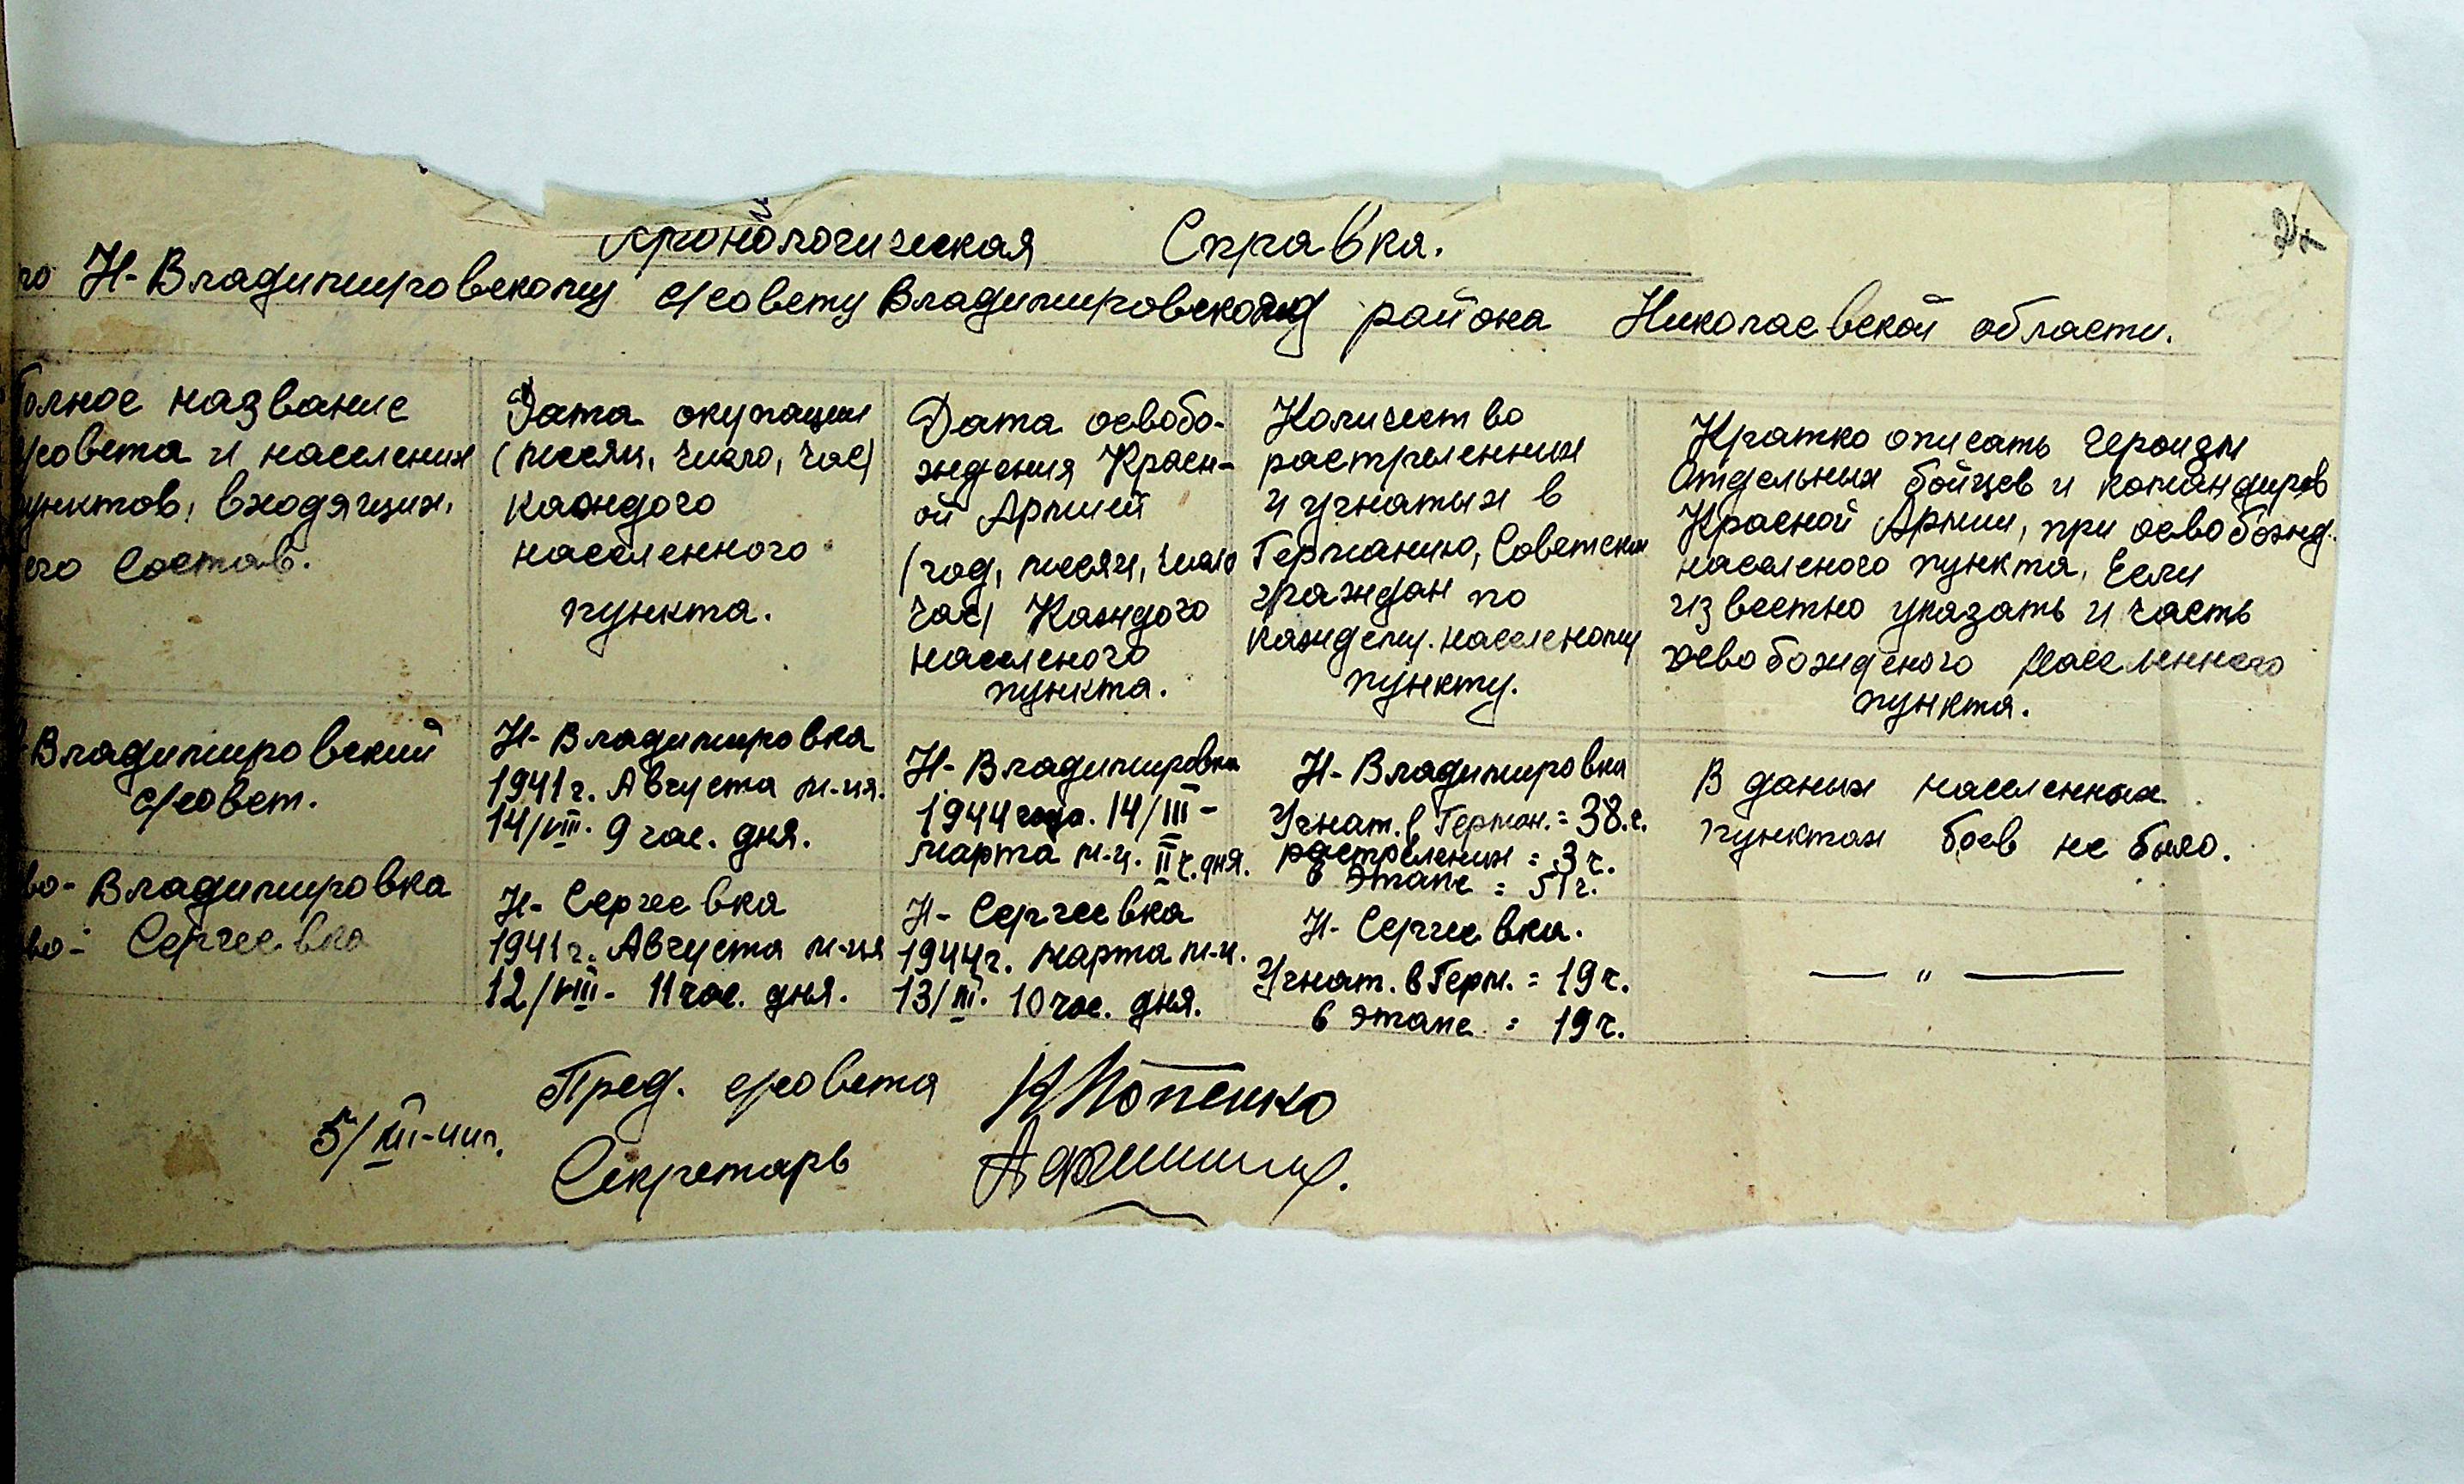 Хронологическая Справка.
по Н-Владимировскому с/совету Владимировского района Николаевской области.
Полное название
с/совета и населения
пунктов, входящих,
его состав.
Дата окупации
(месяц, число, час)
каждого
населенного
пункта.
Дата освобо-
ждения Красн-
ой Армией
(год, месяц, число
час) Каждого
населеного
пункта.
Количество
растреленных
и угнатых в
Германию, Советских
граждан по
каждому населеному
пункту.
Кратко описать героизм
отдельных бойцев и командиров
Красной Армии, при освобожд.
населеного пункта, Если
известно указать и часть
освобожденого населенного
пункта.
Владимировский
с/совет.
во-Владимировка
во- Сергеевка
Н-Владимировка
1941г. Августа м-ця.
14/VIII. 9 час. дня.
Н- Сергеевка
1941г. Августа м-ця
12/VIII- 11 час. дня.
Н-Владимировка
1944 года. 14/III-
марта м-ц. II ч. дня.
Н- Сергеевка
1944г. марта м-ц.
13/III. 10 час. дня.
Н-Владимировка
Угнат. в Герман. = 38.ч.
растреленых = 3 ч.
в этапе = 51 ч.
Н- Сергеевка.
Угнат. в Герм. = 19 ч.
в этапе = 19 ч.
В даных населенных
пунктах боев не было.
— " —
Пред. с/совета Попенко
5/III-44г.
Секретарь